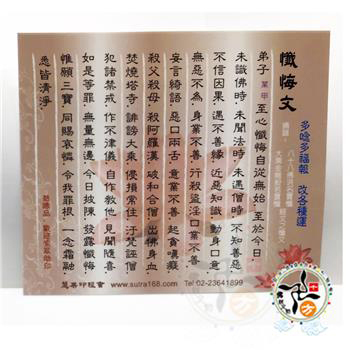 懺悔文
多唸多福報 改各種運
弟子 某甲 至心懺悔自從無始‧至於今日‧
未識佛時‧未聞法時‧未遇僧時‧不知善惡‧
不信因果‧遇不善緣‧近惡知識‧動身口意‧
無惡不為‧身業不善‧行殺盜淫‧口業不善‧
妄言綺語‧惡口兩舌‧意業不善‧起貪嗔癡‧
殺父殺母‧殺阿羅漢‧破和合僧‧出佛身血‧
焚燒塔寺‧誹謗大乘‧侵損常住‧汙梵誣僧‧
犯諸禁戒‧作不律儀‧自作教他‧見聞隨喜‧
如是等罪‧無量無邊‧今日披陳‧發露懺悔‧
惟願三寶‧同賜哀憐‧令我罪根‧一念霜融‧
悉皆清淨‧
結緣品‧歡迎索取助印
萬果印經會 www.sutra168.com Tel 02-23641899
十方